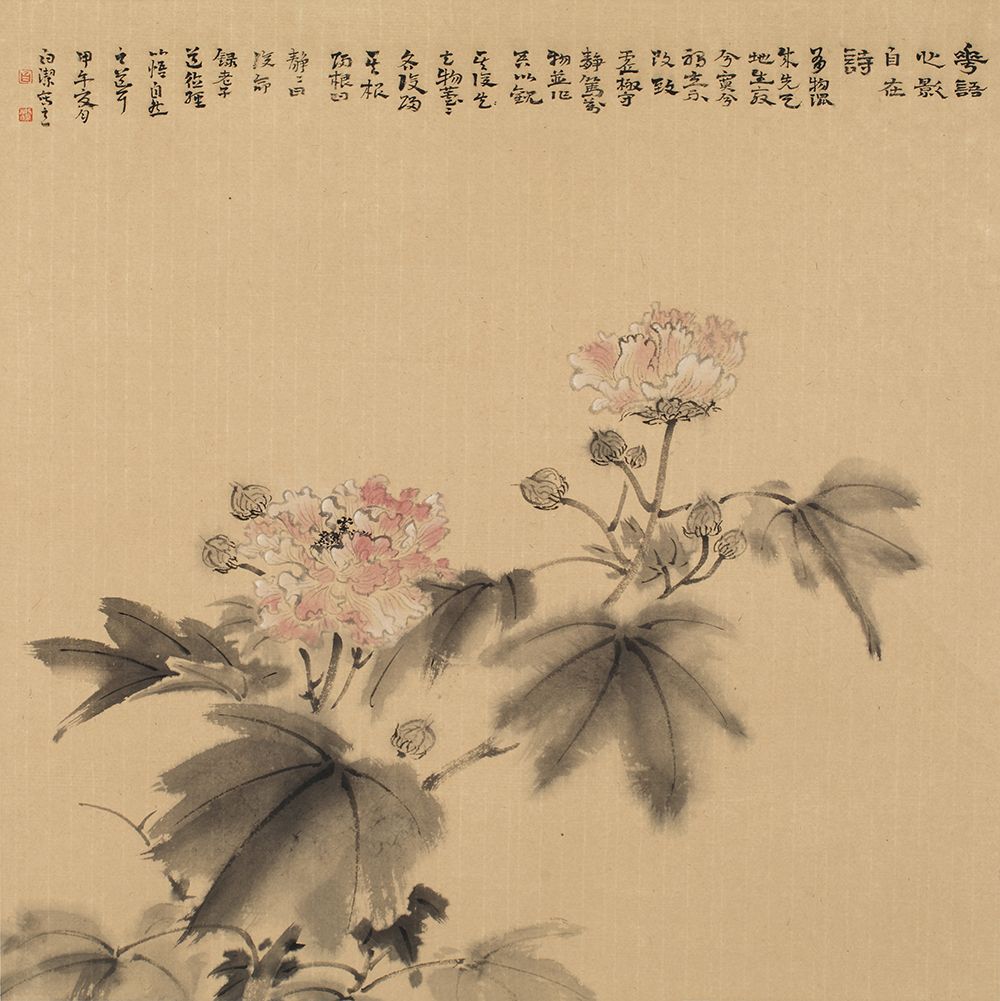 華語
心影
自在
詩
有物混
成先天
地生寂
兮寞兮
獨立不
改致
虛極守
靜篤萬
物並作
吾以觀
其復
夫物芸〻
各復歸
其根
歸根曰
靜〻曰
復命
錄老子
道德經
悟自然
之道耳
甲午夏月
白潔寫之